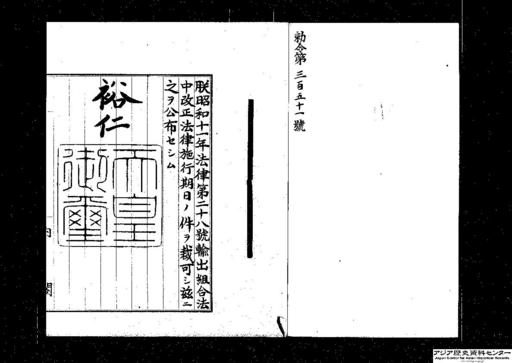 勅令第三百五十一號
朕昭和十一年法律第二十八號輸出組合法
中改正法律施行期日ノ件ヲ裁可シ茲ニ
之ヲ公布セシム
裕仁
天皇
御璽
内閣
アジア歴史資料センター
Japan Center for Asian Historical Records